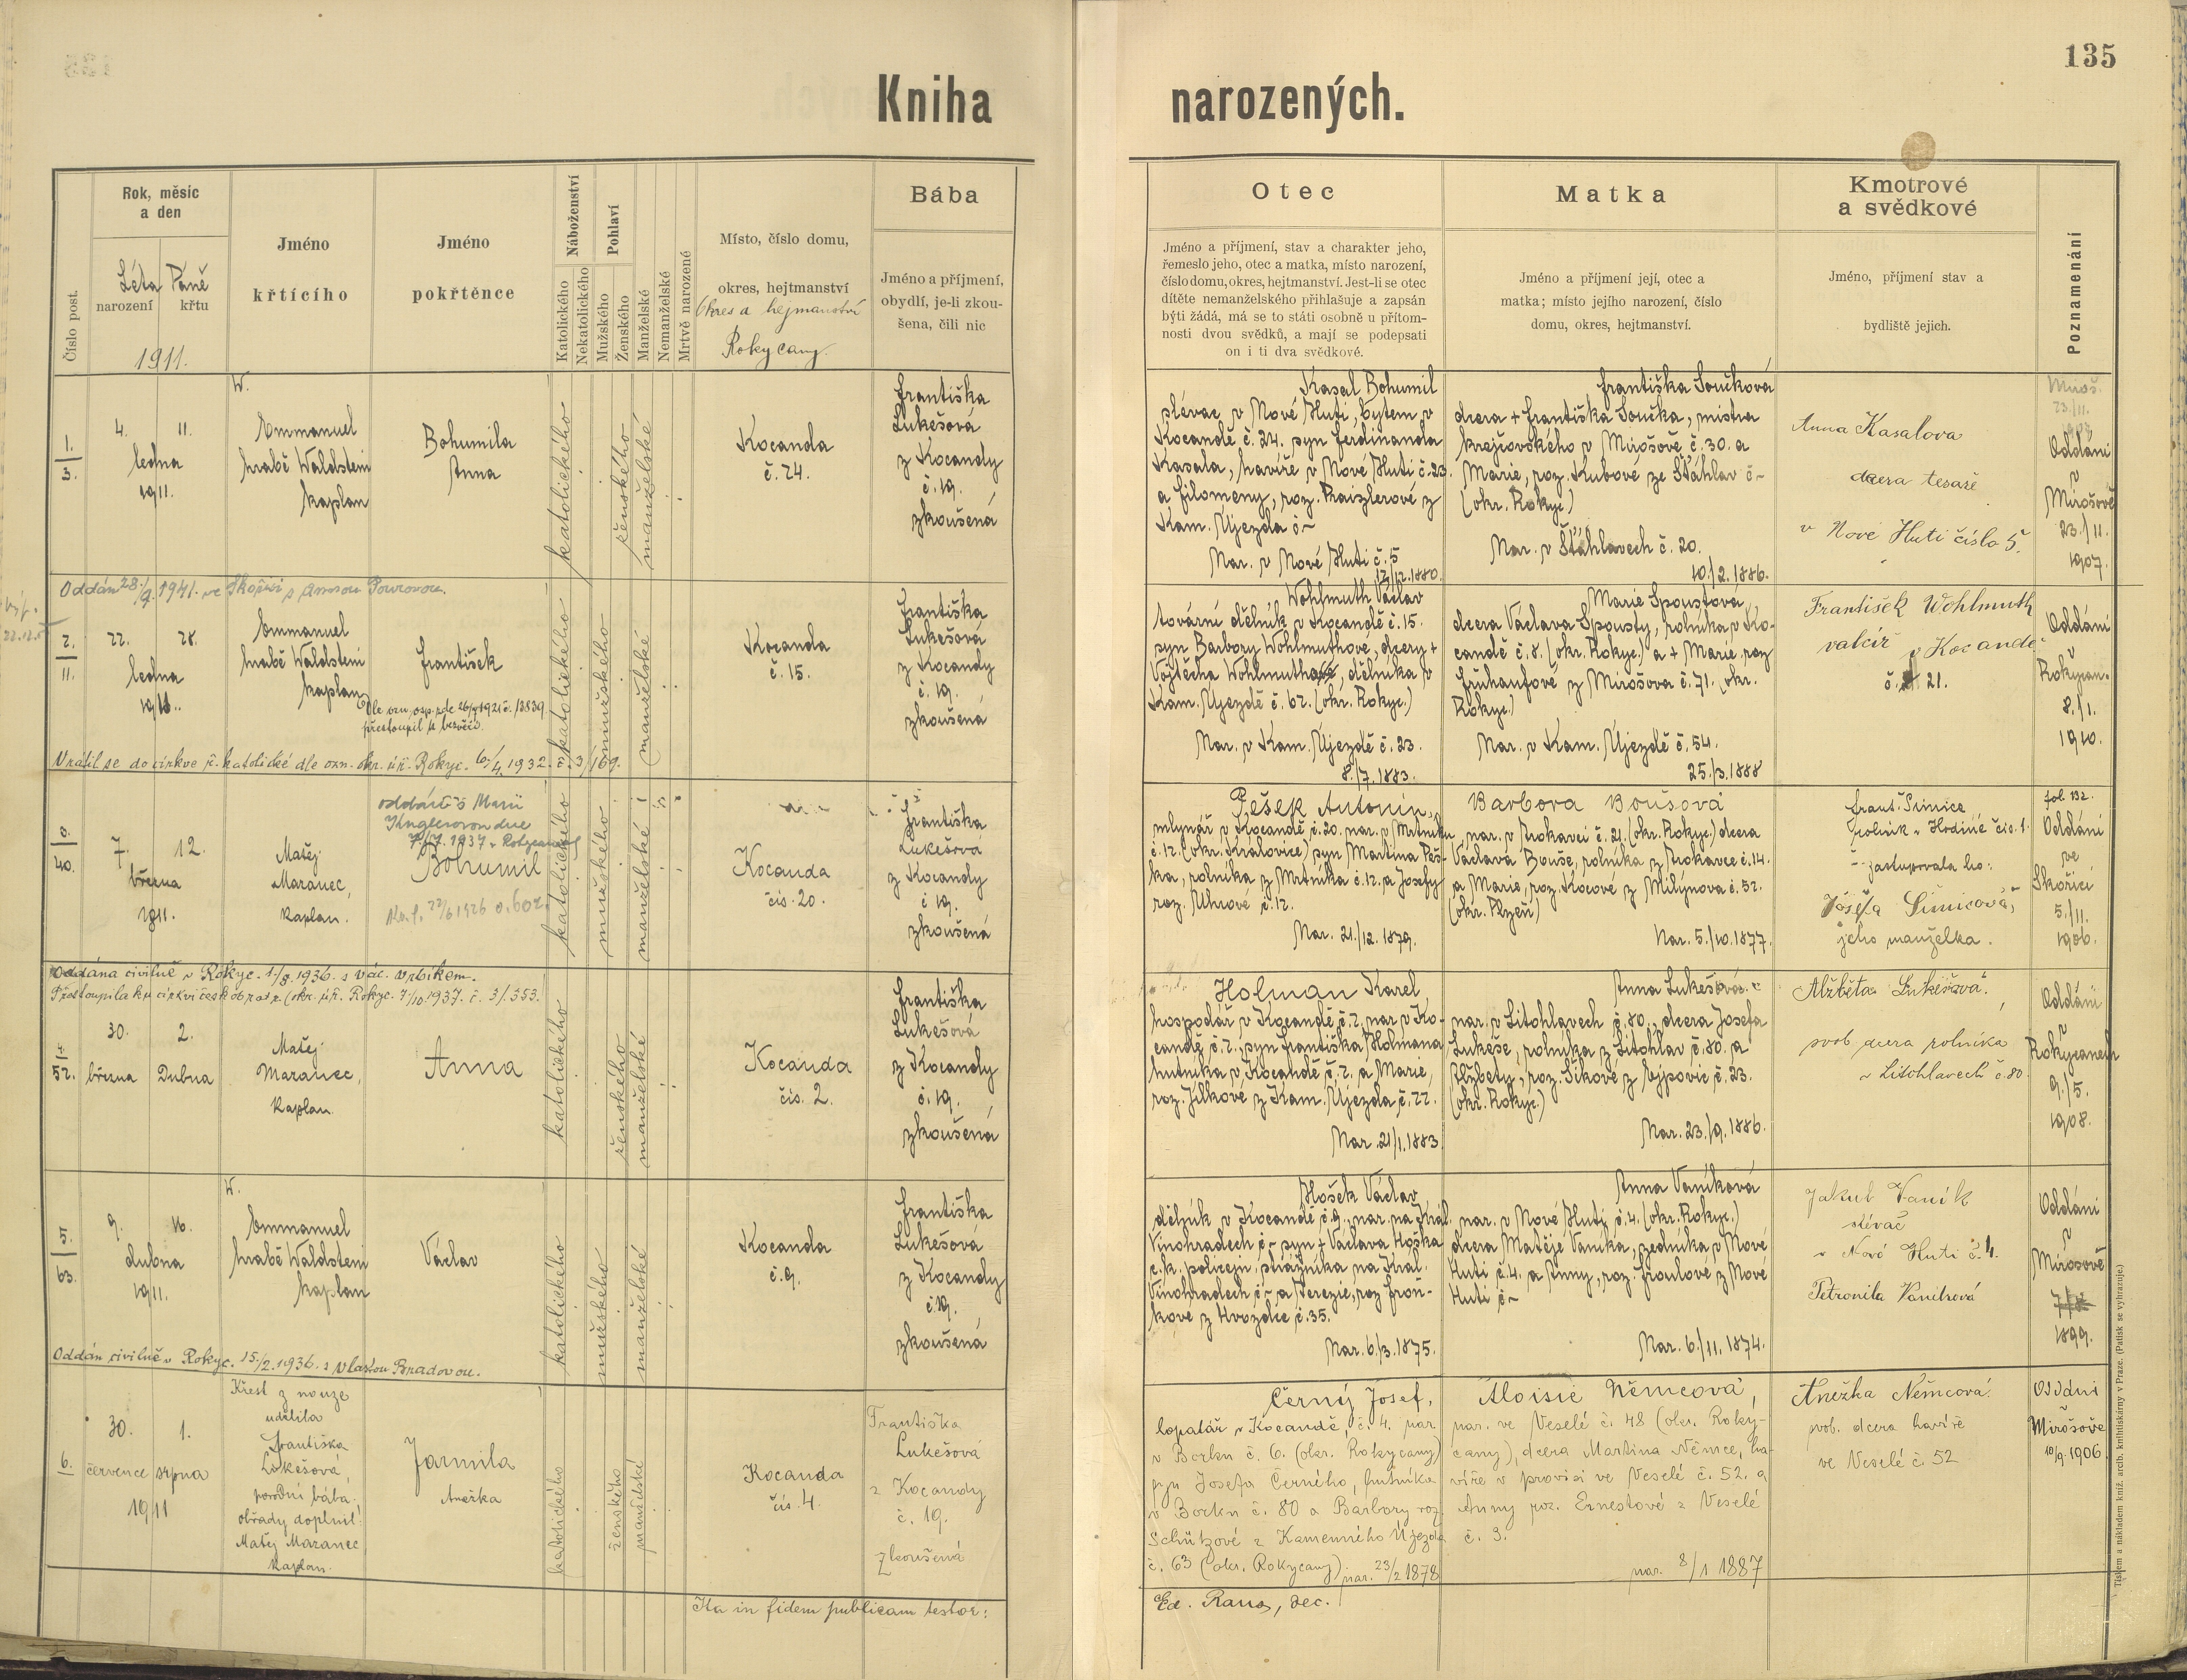 135
Kniha narozených.
Číslo post.
Rok, měsíc
a den
Léta Páně
narození
křtu
1911.
Jméno
křtícího
Jméno
pokřtěnce
Náboženství
Katolického
Nekatolického
Pohlaví
Mužského
Ženského
Manželské
Nemanželské
Mrtvě narozené
Místo, číslo domu,
okres, hejtmanství
Okres a hejmanství
Rokycany.
Bába
Jméno a příjmení,
obydlí, je-li zkou-
šena, čili nic
Otec
Jméno a příjmení, stav a charakter jeho,
řemeslo jeho, otec a matka, místo narození,
číslo domu, okres, hejtmanství. Jest-li se otec
dítěte nemanželského přihlašuje a zapsán
býti žádá, má se to státi osobně u přítom-
nosti dvou svědků, a mají se podepsati
on i ti dva svědkové.
Matka
Jméno a příjmení její, otec a
matka; místo jejího narození, číslo
domu, okres, hejtmanství.
Kmotrové
a svědkové
Jméno, příjmení stav a
bydliště jejich.
Poznamenání
1.
3.
4. 11.
ledna
1911.
W.
Emmanuel
hrabě Waldstein
kaplan
Bohumila
Anna
katolického
ženského
manželské
Kocanda
č. 24.
Františka
Lukešová
z Kocandy
č. 19.
zkoušená
Kasal Bohumil
slévač v Nové Huti, bytem v
Kocandě č. 24. syn Ferdinanda
Kasala, havíře v Nové Huti č. 23.
a Filomeny, roz. Praizlerové z
Kam. Újezda č ~
Nar. v Nové Huti č. 5
12/12. 1880.
Františka Součková
dcera + Františka Součka, mistra
krejčovského v Mirošově č. 30. a
Marie, roz. Kubové ze Šťáhlav č ~
(okr. Rokyc.)
Nar. v Šťáhlavech č. 20.
10./2. 1886.
Anna Kasalova
dcera tesaře
v Nové Huti číslo 5.
Oddáni
v
Mirošově
23./11.
1907.
Oddán 28./9. 1941. ve Skořici s
2.
11.
22. 28.
ledna
1911.
Emmanuel
hrabě Waldstein
kaplan
František
přestoupil k bezvěří.
katolického
mužského
manželské
Kocanda
č. 15.
Františka
Lukešová
z Kocandy
č. 19.
zkoušená
Vrátil se do církve ř. katolické dle ozn. okr. úř. Rokyc. 6/4. 1932. č. 3/169.
Wohlmuth Václav
tovární dělník v Kocandě č. 15.
syn Barbory Wohlmuthové, dcery +
Vojtěcha Wohlmutha, dělníka v
Kam. Újezdě č. 62. (okr. Rokyc.)
Nar. v Kam. Újezdě č. 23.
8./7. 1883.
Marie Spoustová
dcera Václava Spousty, rolníka v Ko-
candě č. 8. (okr. Rokyc.) a + Marie, roz.
Frühaufové z Mirošova č. 71. (okr.
Rokyc.)
Nar. v Kam. Újezdě č. 54.
25./3. 1888
František Wohlmuth
valcíř v Kocandě
č. 21.
Oddáni
v
Rokycan.
8./1.
1910.
40.
7. 12.
března
1911.
Matěj
Maranec,
kaplan.
oddán s Marii
dne
7/7. 1937 v Rokycanech
Bohumil
katolického
mužského
manželské
Kocanda
čís. 20.
Františka
Lukešová
z Kocandy
č 19.
zkoušená
Pešek Antonín,
mlynář v Kocandě č. 20. nar. v Mrtníku
č. 12. (okr. Kralovice) syn Martina Peš-
ka, rolníka z Mrtníka č. 12. a Josefy
roz. Uhrové č. 12.
Nar. 21./12. 1879.
Barbora Boušová
nar. v Trokavci č. 21. (okr. Rokyc.) dcera
Václava Bouše, rolníka z Trokavce č. 14.
a Marie, roz. Kocové z Milýnova č. 52.
(okr. Plzeň)
Nar. 5./10. 1877.
Frant. Šimice
rolník v Hodině čís. 1.
zastupovala ho:
Josefa Šimicová,
jeho manželka.
fol. 132.
Oddáni
ve
Skořici
5./11.
1906.
Oddána civilně v Rokyc. 1./8. 1936. s Vác. Vrbíkem.
Přestoupila ku církvi českobratr. (okr. úř. Rokyc. 7/10 1937. č. 3/353.
4.
52.
30. 2.
března Dubna
Matěj
Maranec,
kaplan.
Anna
katolického
ženského
manželské
Kocanda
čís. 2.
Františka
Lukešová
z Kocandy
č. 19.
zkoušená
Holman Karel
hospodář v Kocandě č. 2. nar. v Ko-
candě č. 2., syn Františka Holmana
hutníka v Kocandě č. 2. a Marie,
roz. Jílkové z Kam. Újezda č. 22.
Nar. 21/1. 1883.
Anna Lukešová
nar. v Litohlavech č. 80., dcera Josefa
Lukeše, rolníka z Litohlav č. 80. a
Alžběty, roz. Šikové z Ejpovic č. 23.
(okr. Rokyc.)
Nar. 23./9. 1886.
Alžběta Lukešová
svob. dcera rolníka
v Litohlavech č. 80.
Oddáni
v
Rokycanech
9./5.
1908.
5.
63.
9. 16.
dubna
1911.
W.
Emmanuel
hrabě Waldstein
kaplan
Václav
katolického
mužského
manželské
Kocanda
č. 9.
Františka
Lukešová
z Kocandy
č. 19.
zkoušená
Oddán civilně v Rokyc. 15/2. 1936. s Vlastou Bradovou.
Hošek Václav
dělník v Kocandě č. 9., nar. na Král.
Vinohradech č ~ syn + Václava Hoška
c. k. policejn. strážníka na Král.
Vinohradech č ~ a Terezie, roz. Froň-
kové z Hvozdce č. 35.
Nar. 6./3. 1875.
Anna Vaníková
nar. v Nové Huti č. 4. (okr. Rokyc.)
dcera Matěje Vaníka, zedníka v Nové
Huti č. 4. a Anny, roz. Froulové z Nové
Huti č ~
Nar. 6./11. 1874.
Jakub Vaník
slévač
v Nové Huti č. 4.
Petronila Vaníková
Oddáni
v
Mirošově
1899.
6.
30. 1.
července srpna
1911
Křest z nouze
udělila
Františka
Lukešová,
porodní bába.
obřady doplnil:
Matěj Maranec
kaplan.
Jarmila
Anežka
katolického
ženského
manželské
Kocanda
čís. 4.
Františka
Lukešová
z Kocandy
č. 19.
zkoušená
Černý Josef,
lopatář v Kocandě, č. 4. nar.
v Borku č. 6. (okr. Rokycany)
syn Josefa Černého, hutníka
v Borku č. 80 a Barbory roz.
Schützové z Kamenného Újezda
č. 63 (okr. Rokycany). nar. 23/2 1878
Aloisie Němcová,
nar. ve Veselé č. 48 (okr. Roky-
cany), dcera Martina Němce, ha-
víře v provisi ve Veselé č. 52. a
Anny roz. Ernestové z Veselé
č. 3.
nar. 8/1 1887
Anežka Němcová
svob. dcera havíře
ve Veselé č. 52
Oddáni
v
Mirošově
10/9. 1906.
Ita in fidem publicam testor:
Ed. Rana, dec.
Tiskem a nákladem kníž. arcib. knihtiskárny v Praze. (Patisk se vyhrazuje.)